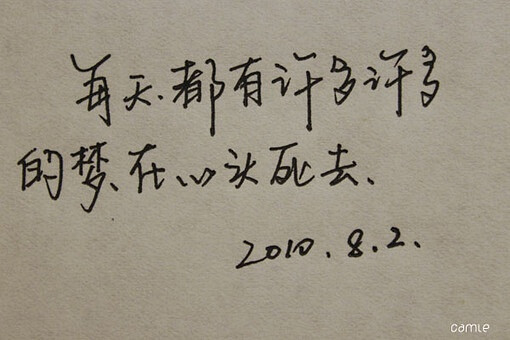 每天.都有许多许多
的梦、在心头死去、
2010.8.2.
camie